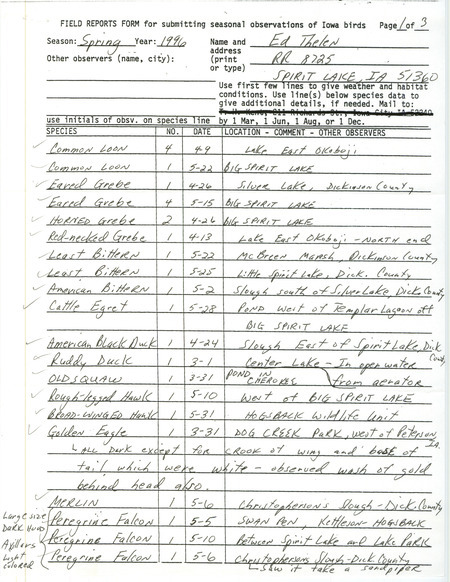 FIELD REPORTS FORM for submitting seasonal observations of Iowa birds Page 1 of 3
Season: Spring Year: 1996 Name and Ed Thelen
Other observers (name, city): address RR 8725
(print
or type) SPIRIT LAKE, IA 51360
Use first few lines to give weather and habitat
conditions. Use line(s) below species data to
give additional details, if needed. Mail to:
use initials of obsv. on species line by 1 Mar, 1 Jun, 1 Aug, or 1 Dec.
SPECIES NO. DATE LOCATION - COMMENT - OTHER OBSERVERS
Common Loon 4 4-9 Lake East Okoboji
Common Loon 1 5-22 BIG SPIRIT LAKE
Eared Grebe 1 4-26 Silver Lake, Dickinson County
Eared Grebe 4 5-15 BIG SPIRIT LAKE
HORNED Grebe 2 4-26 BIG SPIRIT LAKE
Red-necked Grebe 1 4-13 Lake East Okoboji - NORTH end
Least Bittern 1 5-22 McBreen Marsh, Dickinson County
Least Bittern 1 5-25 Little Spirit Lake, Dick. County
American Bittern 1 5-2 Slough south of Silver Lake, Dick. County
Cattle Egret 1 5-28 POND west of Templar Lagoon off
BIG SPIRIT LAKE
American Black Duck 1 4-24 Slough East of Spirit Lake, Dick County
Ruddy Duck 1 3-1 Center Lake - In open water
from aerator
OLDSQUAW 1 3-31 POND IN CHEROKEE
Rough-legged Hawk 1 5-10 West of BIG SPIRIT LAKE
BROAD-WINGED Hawk 1 5-31 HOGSBACK Wildlife Unit
Golden Eagle 1 3-31 DOG CREEK PARK, west of Peterson, IA.
ALL DARK except for crook of wing and base of
tail which were white - observed wash of gold
behind head also.
MERLIN 1 5-6 Christopherson's Slough - Dick. County
Large size
DARK Hood
Light
colored
Peregrine Falcon 1 5-5 SWAN PEN, Kettleson - HOGSBACK
Peregrine Falcon 1 5-10 Between Spirit Lake and Lake Park
Peregrine Falcon 1 5-6 Christophersons Slough - Dick County
saw it take a sandpiper